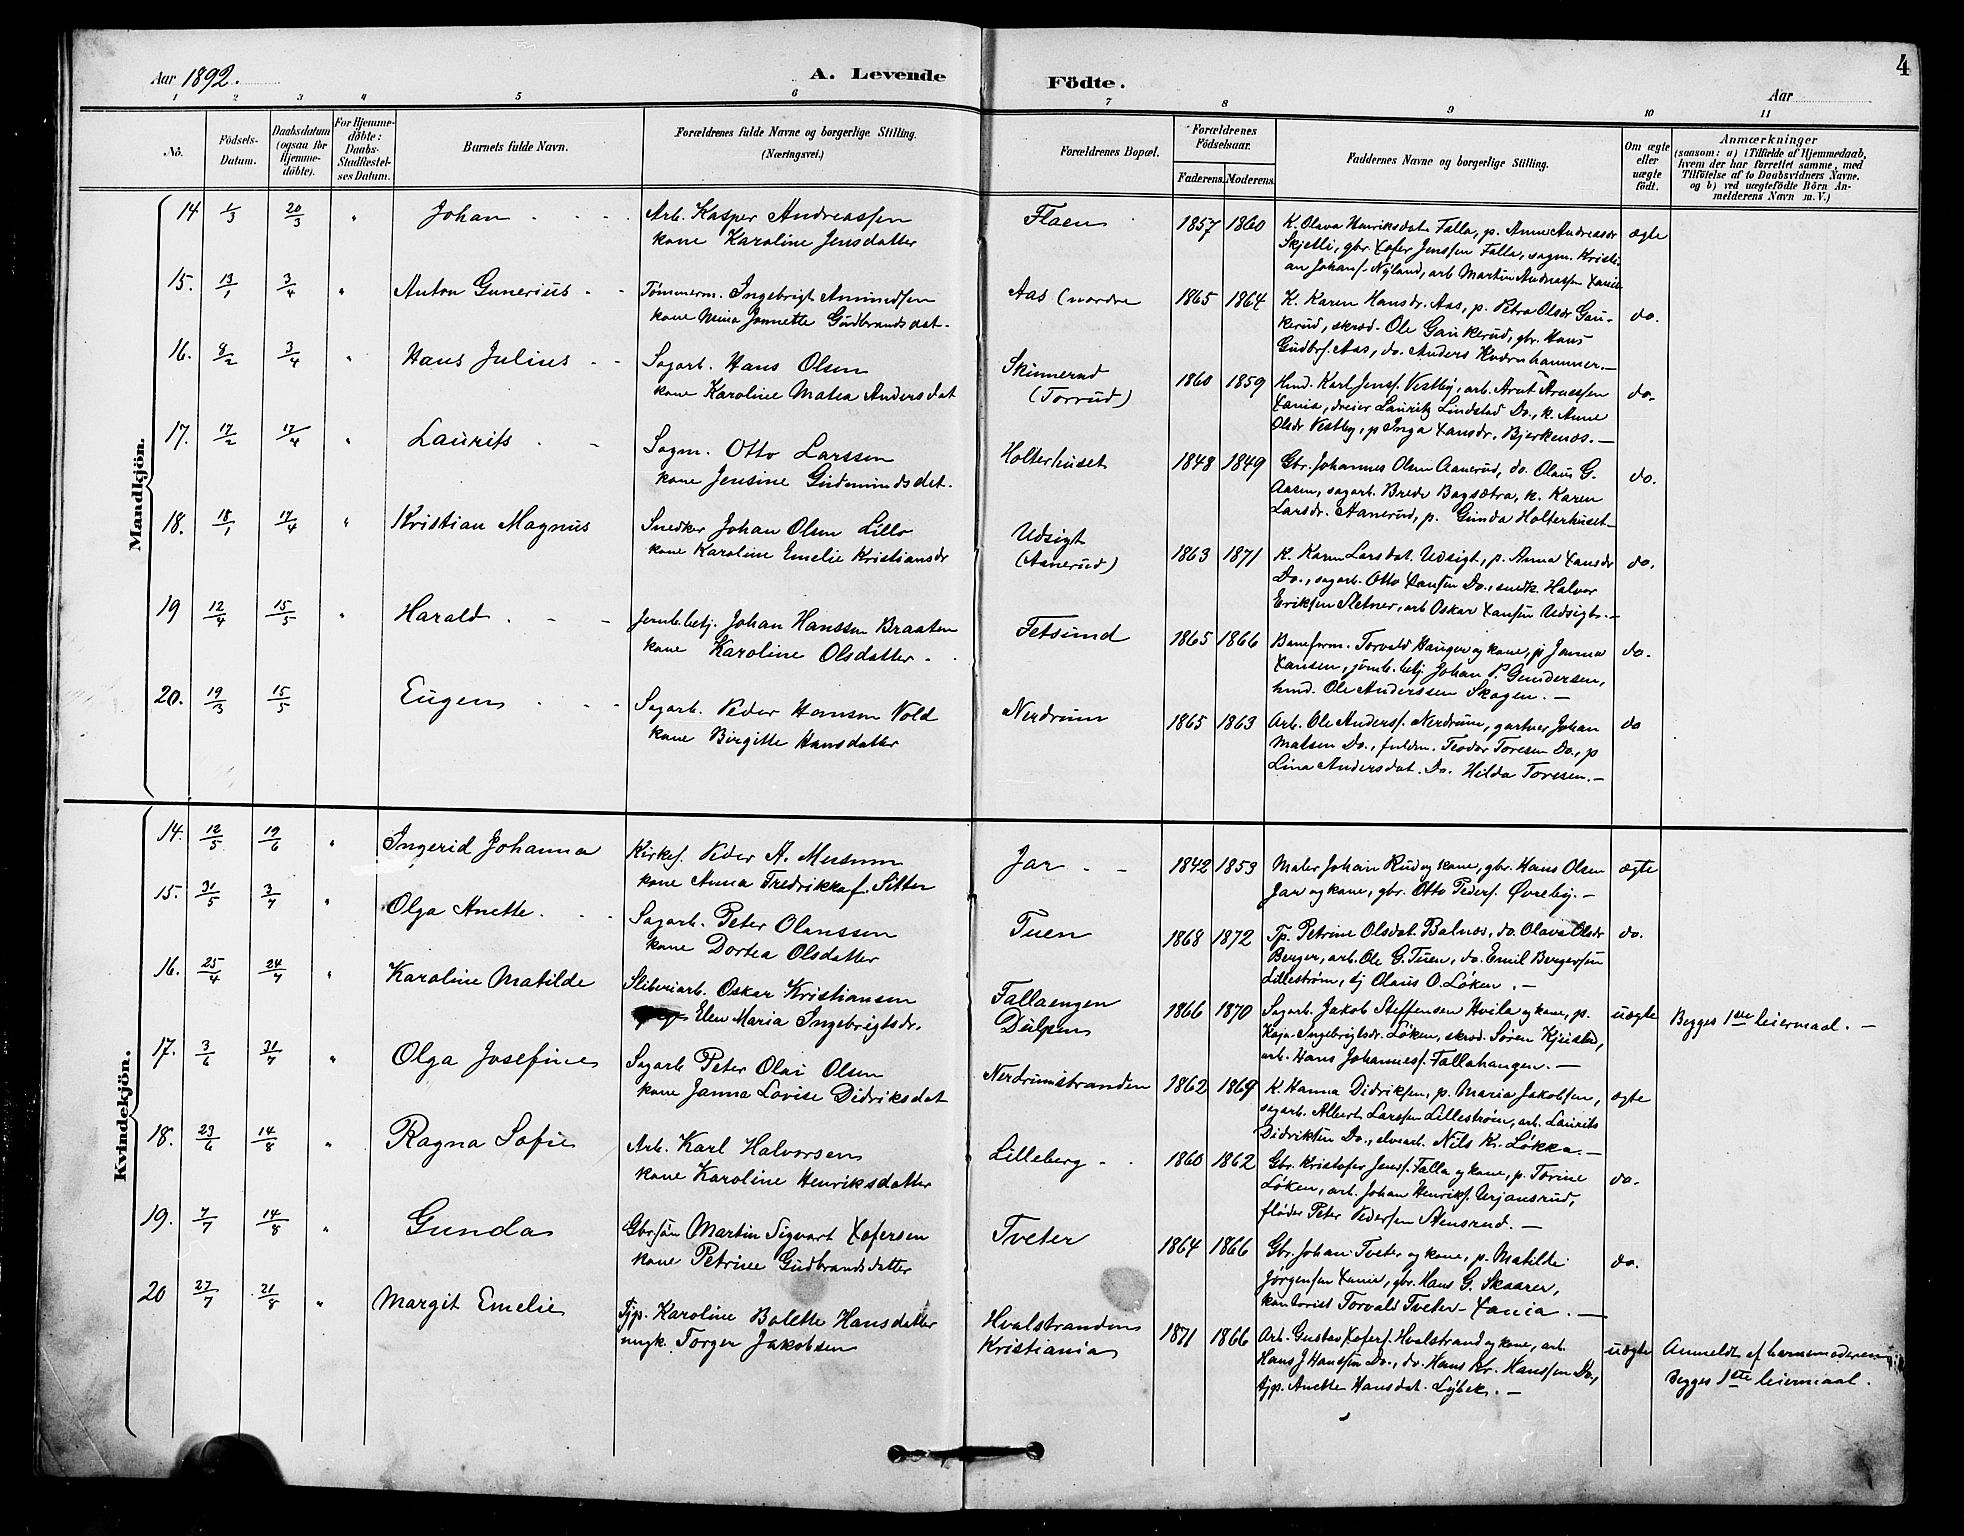 Aar 1892.
A. Levende Födte.
Aar
4
1 2 3 4 5 6 7 8 9 10 11
No.
Födsels-Datum.
Daabsdatum (ogsaa for Hjemme-döbte).
For Hjemme-döbte: Daabs-Stadfæstel-ses Datum.
Barnets fulde Navn.
Forældrenes fulde Navne og borgerlige Stilling.
(Næringsvei.)
Forældrenes Bopæl.
Forældrenes Födselsaar.
Faderens. Moderens.
Faddernes Navne og borgerlige Stilling.
Om ægte eller uægte födt.
Anmærkninger
(saasom: a) i Tilfælde af Hjemmedaab,
hvem der har forrettet samme, med
Tilföielse af to Daabsvidners Navne.
og b) ved uægtefödte Börn An-
melderens Navn m. V.)
Mandkjön.
14 1/3 20/3 " Johan
Arb. Kasper Andreassen
kone Karoline Jensdatter
Flaen 1857 1860
K. Olava Henriksdat. Falla, p. Anne Andreasdr
Skjetli, gbr. Xofer Jenssen Falla, sagm. Kristi-
an Johans. Nyland, arb Martin Andreassen Xania
ægte
15. 13/1 3/4 " Anton Gunerius
Tømmerm. Ingebrigt Amundsen
kone Mina Jannette Gudbrandsdat.
Aas (nordre 1865 1864
K. Karen Hansdr. Aas, p. Petra Olsdr Gau-
kerud, skræd. Ole Gaukerud, gbr. Hans
Gudbrs. Aas, do. Anders Kværnhammer.
do.
16. 8/2 3/4 " Hans Julius
Sagarb. Hans Olsen
kone Karoline Matea Andersdat
Skinnerud
(Torrud)
1860 1859
Hmd. Karl Jens. Vestby, arb. Arnt Arnessen
Xania, dreier Lauritz Lindstad Do., k. Anne
Olsdr Vestby, p Inga Xansdr. Bjerkenæs.
do.
17. 17/2 17/4 " Laurits
Sagm. Otto Larssen
kone Jensine Gudmundsdat.
Holterhuset 1848 1849
Gbr. Johannes Olsen Aanerud, do. Olaus G.
Aasen, sagarb. Brede Bagsætra, k. Karen
Larsdr. Aanerud, p. Gunda Holterhuset
do.
18. 18/1 17/4 " Kristian Magnus
Snedker Johan Olsen Lillo
kone Karoline Emelie Kristiansdr
Udsigt
(Aanerud)
1863 1871
K. Karen Larsdat. Udsigt, p. Anna Xansdr
Do., sagarb. Otto Xansen Do., snedk. Halvor
Eriksen Sletner, arb Oskar Xansen Udsigt.
do.
19 12/4 15/5 " Harald
Jernb.betj. Johan Hanssen Braaten
kone Karoline Olsdatter
Fetsund 1865 1866
Baneform. Torvald Hauger og kone, pi Janna
Xansen, jernb.betj. Johan P. Gundersen,
hmd. Ole Anderssen Skogen.
do.
20. 19/3 15/5 Eugen
Sagarb. Peder Hansen Vold
kone Birgitte Hansdatter
Nerdrum 1865 1863
Arb. Ole Anders. Nerdrum, gartner Johan
Matsen Do., fuldm. Teodor Toresen Do., p
Lina Andersdat. Do. Hilda Toresen.
do
Kvindekjön.
14. 12/5 19/6 " Ingerid Johanna
Kirkes. Peder A. Mersum
kone Anna Fredrikka f. Sitter
Jar 1842 1853
Maler Johan Rud og kone, gbr. Hans Olsen
Jar og kone, gbr. Otto Peders. Øvreby.
ægte
15. 31/5 3/7 " Olga Anette.
Sagarb. Peter Olaussen
kone Dortea Olsdatter
Tuen 1868 1872
Tp. Petrine Olsdat. Balnæs, do. Olava Olsdr
Berger, arb. Ole G. Tuen, do. Emil Bergersen
Lillestrøm, tj Olaus O. Løken.
do.
16. 25/4 24/7 " Karoline Matilde
Sliberiarb. Oskar Kristiansen
Elen Maria Ingebrigtsdr.
Fallaengen
Dulpen
1866 1870
Sagarb. Jakob Steffensen Hvila og kone, p.
Kaja Ingebrigtsdr. Løken, skræd. Søren Kjeistad,
arb. Hans Johannes. Fallahangen.
uægte
Begges 1ste leiermaal.
17. 3/6 31/7 " Olga Josefine
Sagarb Peter Olai Olsen
kone Janna Lovise Didriksdat
Nerdrumstranden 1862 1869
K. Hanna Didriksen, p. Maria Jakobsen,
sagarb. Albert Larssen Lillestrøm, arb. Laurits
Didriksen Do., elvearb. Nils Kr. Løkka.
ægte
18. 23/6 14/8 " Ragna Sofie
Arb. Karl Halvorsen
kone Karoline Henriksdatter
Lilleberg 1860 1862
Gbr. Kristofer Jens. Falla og kone, p. Torine
Løken, arb. Johan Henriks. Ørjansrud,
fløder Peter Pedersen Stensrud.
do.
19. 7/7 14/8 " Gunda
Gbrsøn Martin Sigvart Xofersen
kone Petrine Gudbrandsdatter
Tveter 1864 1866
Gbr. Johan Tveter og kone, p. Matilde
Jørgensen Xania, gbr. Hans G. Skaarer,
kontorist Torvald Tveter Xania.
do.
20 27/7 21/8 " Margit Emelie
Tjp. Karoline Bolette Hansdatter
ungk. Torger Jakobsen
Hvalstranden
Kristiania
1871 1866
Arb. Gustav Xofers. Hvalstrand og kone, arb.
Hans J Hanssen Do., do. Hans Kr. Hanssen Do,
tjp. Anette Hansdat. Lybek.
uægte
Anmeldt af barnemoderen
Begges 1ste leiermaal.